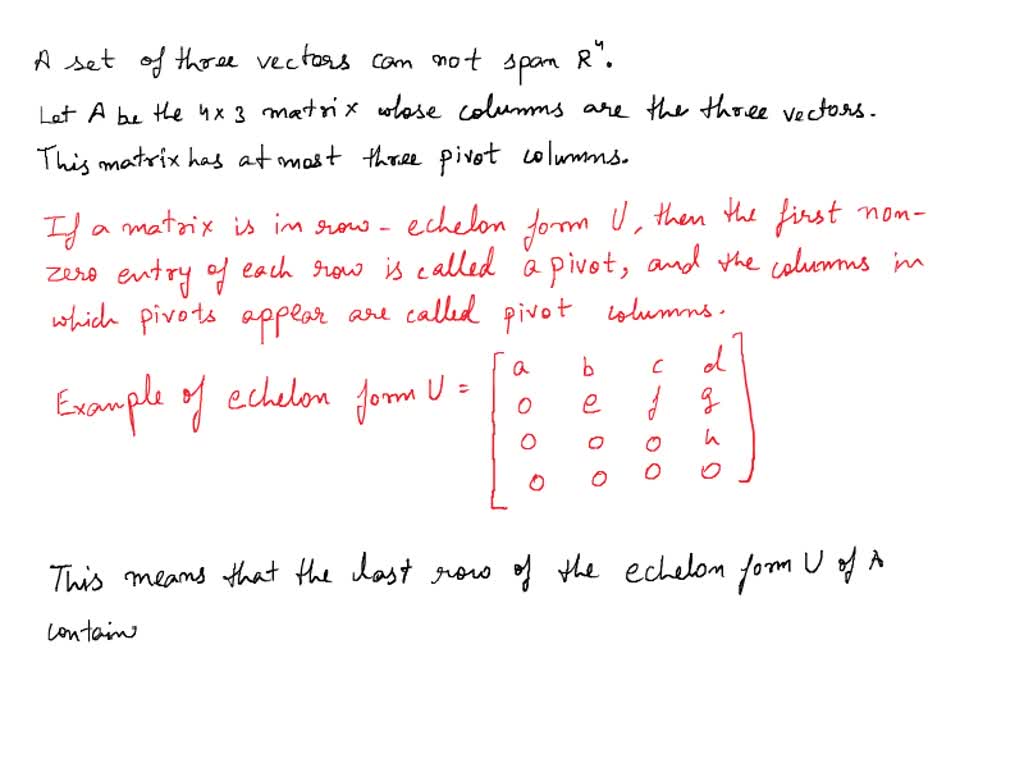 A set of three vectors can not span R⁴.
Let A be the 4 x 3 matrix whose columns are the three vectors.
This matrix has at most three pivot columns.
If a matrix is in row - echelon form U, then the first non-
zero entry of each row is called a pivot, and the columns in
which pivots appear are called pivot columns.
Example of echelon form U = [ a b c d
0 e f g
0 0 0 h
0 0 0 0 ]
This means that the last row of the echelon form U of A
contain